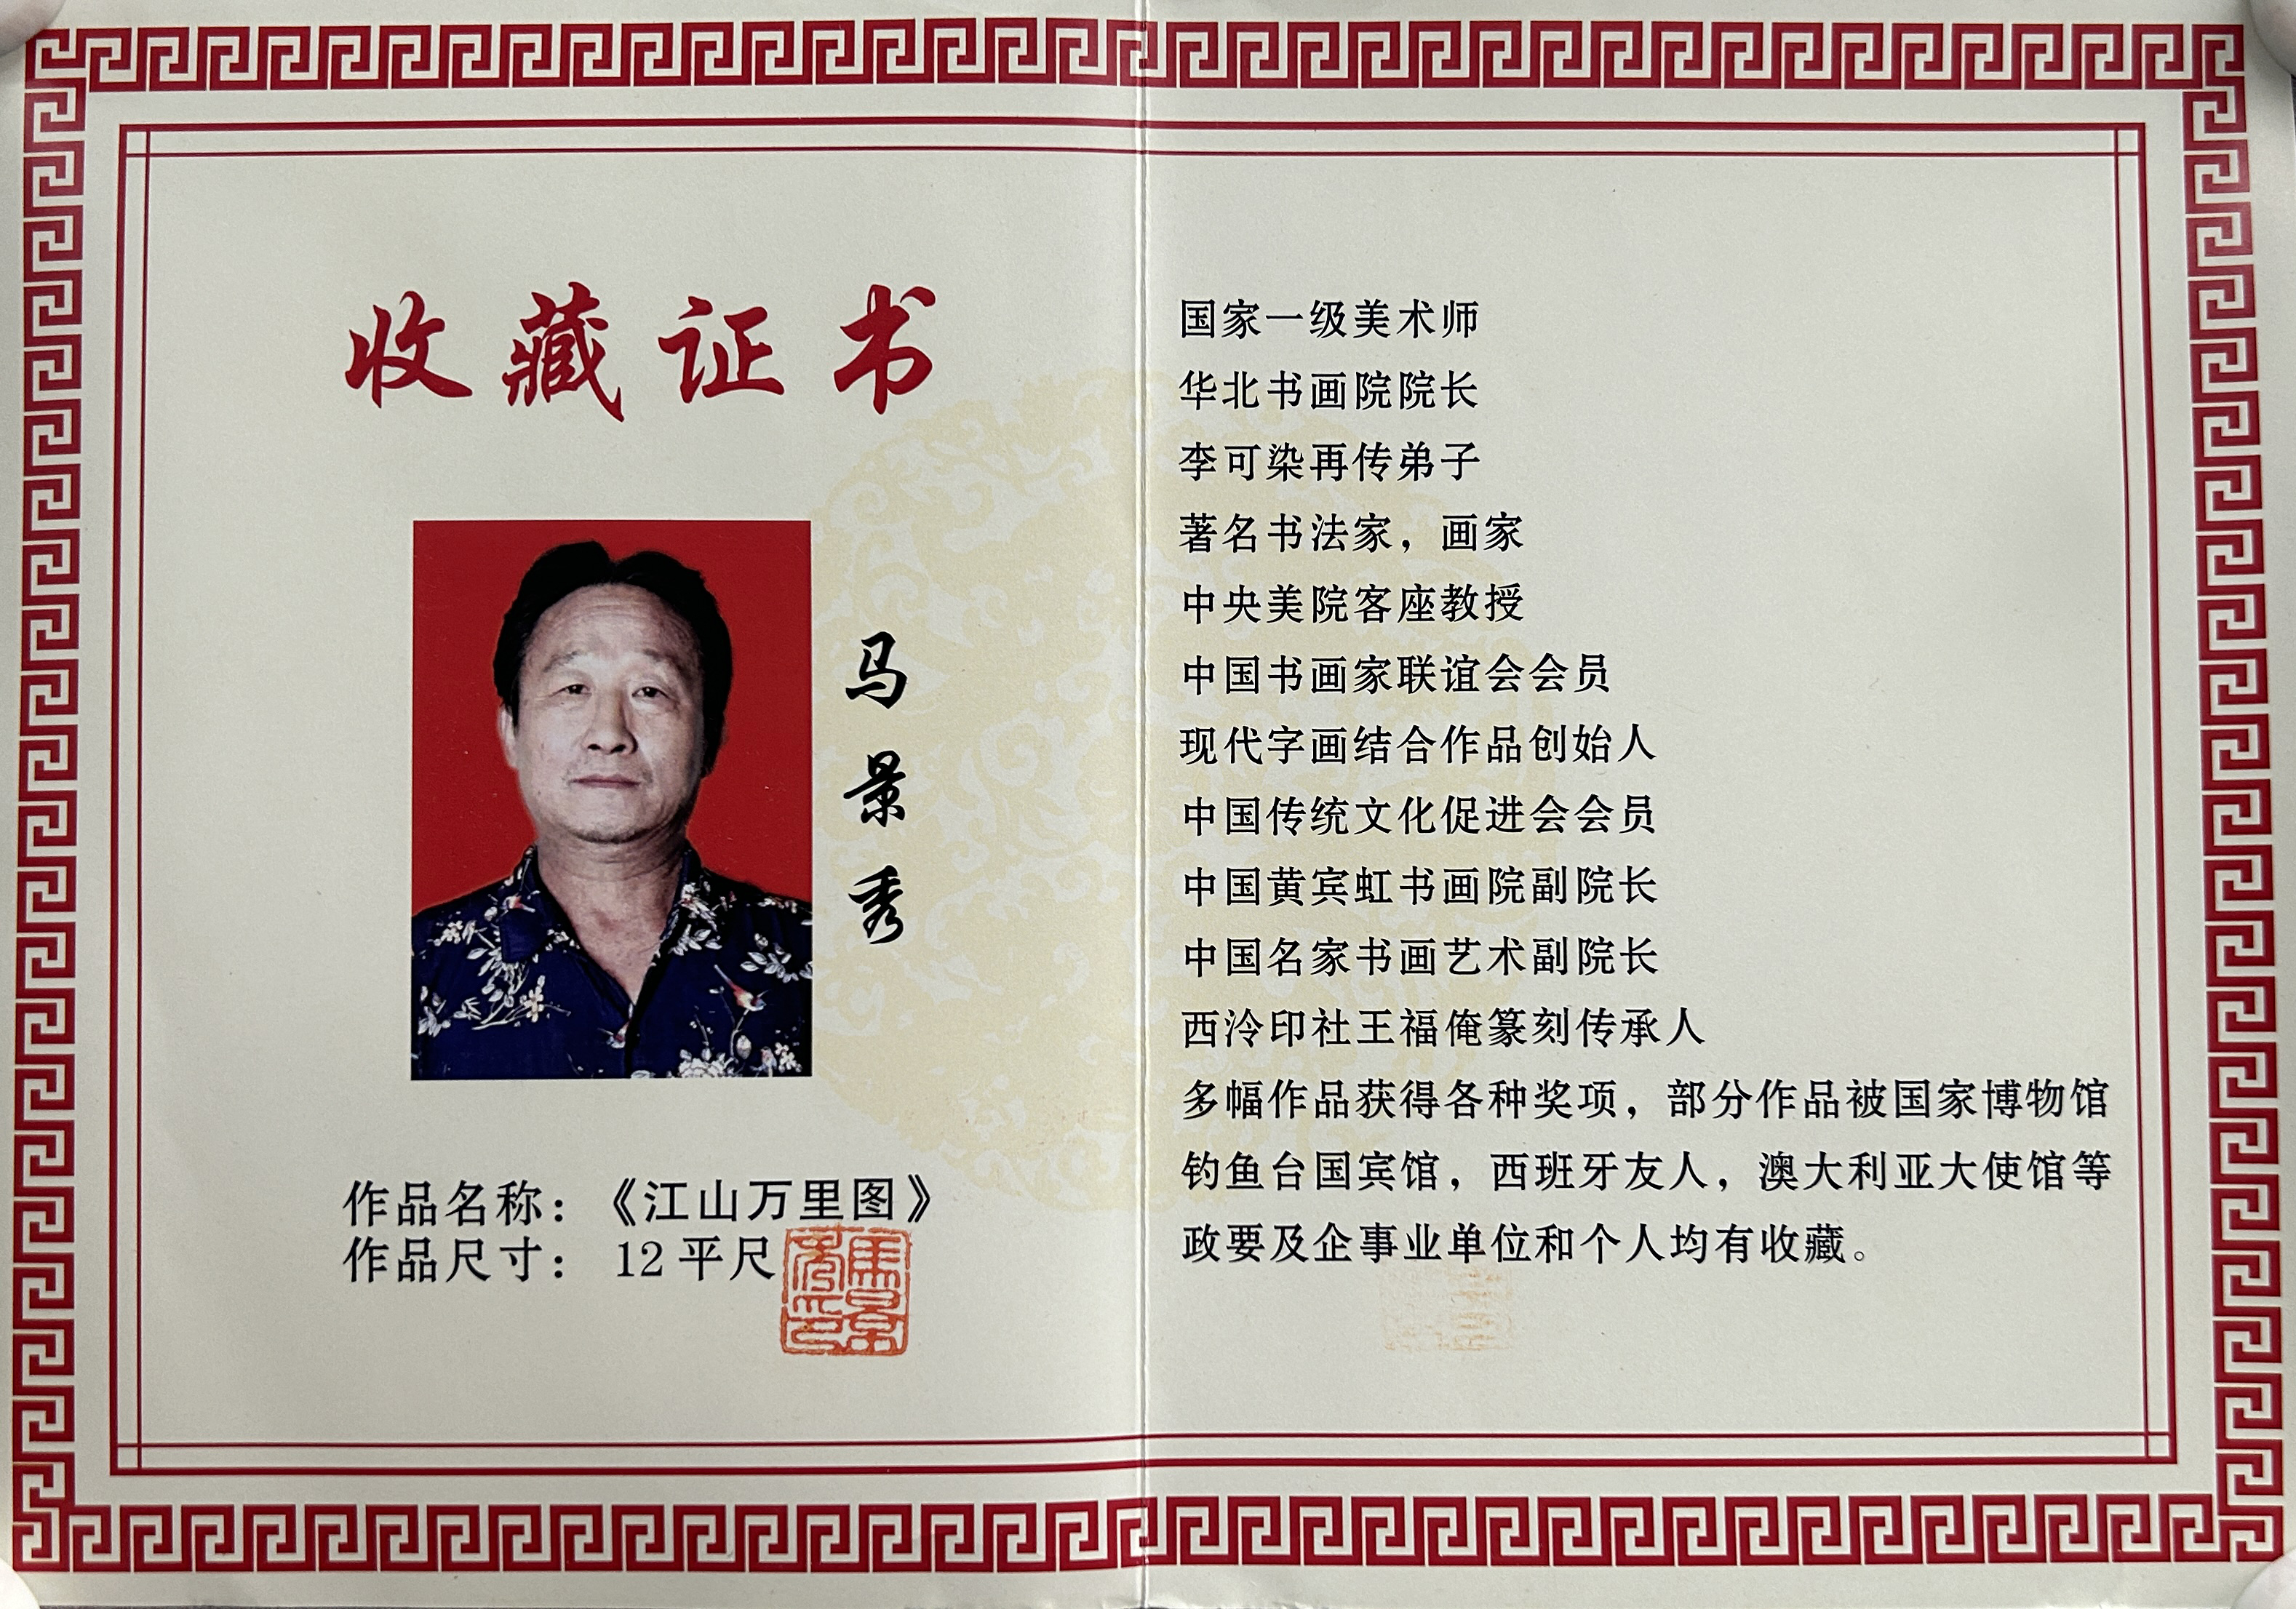 收藏证书
马景秀
作品名称：《江山万里图》
作品尺寸： 12平尺
国家一级美术师
华北书画院院长
李可染再传弟子
著名书法家，画家
中央美院客座教授
中国书画家联谊会会员
现代字画结合作品创始人
中国传统文化促进会会员
中国黄宾虹书画院副院长
中国名家书画艺术副院长
西泠印社王福俺篆刻传承人
多幅作品获得各种奖项，部分作品被国家博物馆
钓鱼台国宾馆，西班牙友人，澳大利亚大使馆等
政要及企事业单位和个人均有收藏。